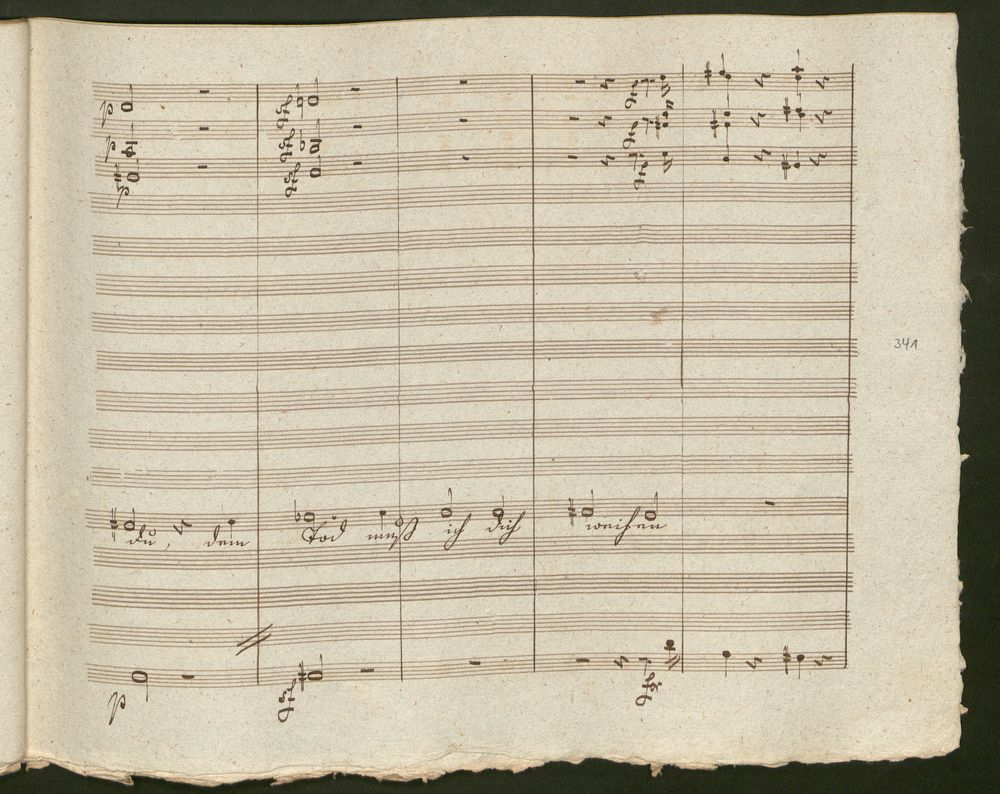 p
p
p
341
du, dem Tod muß ich dich weihen
p